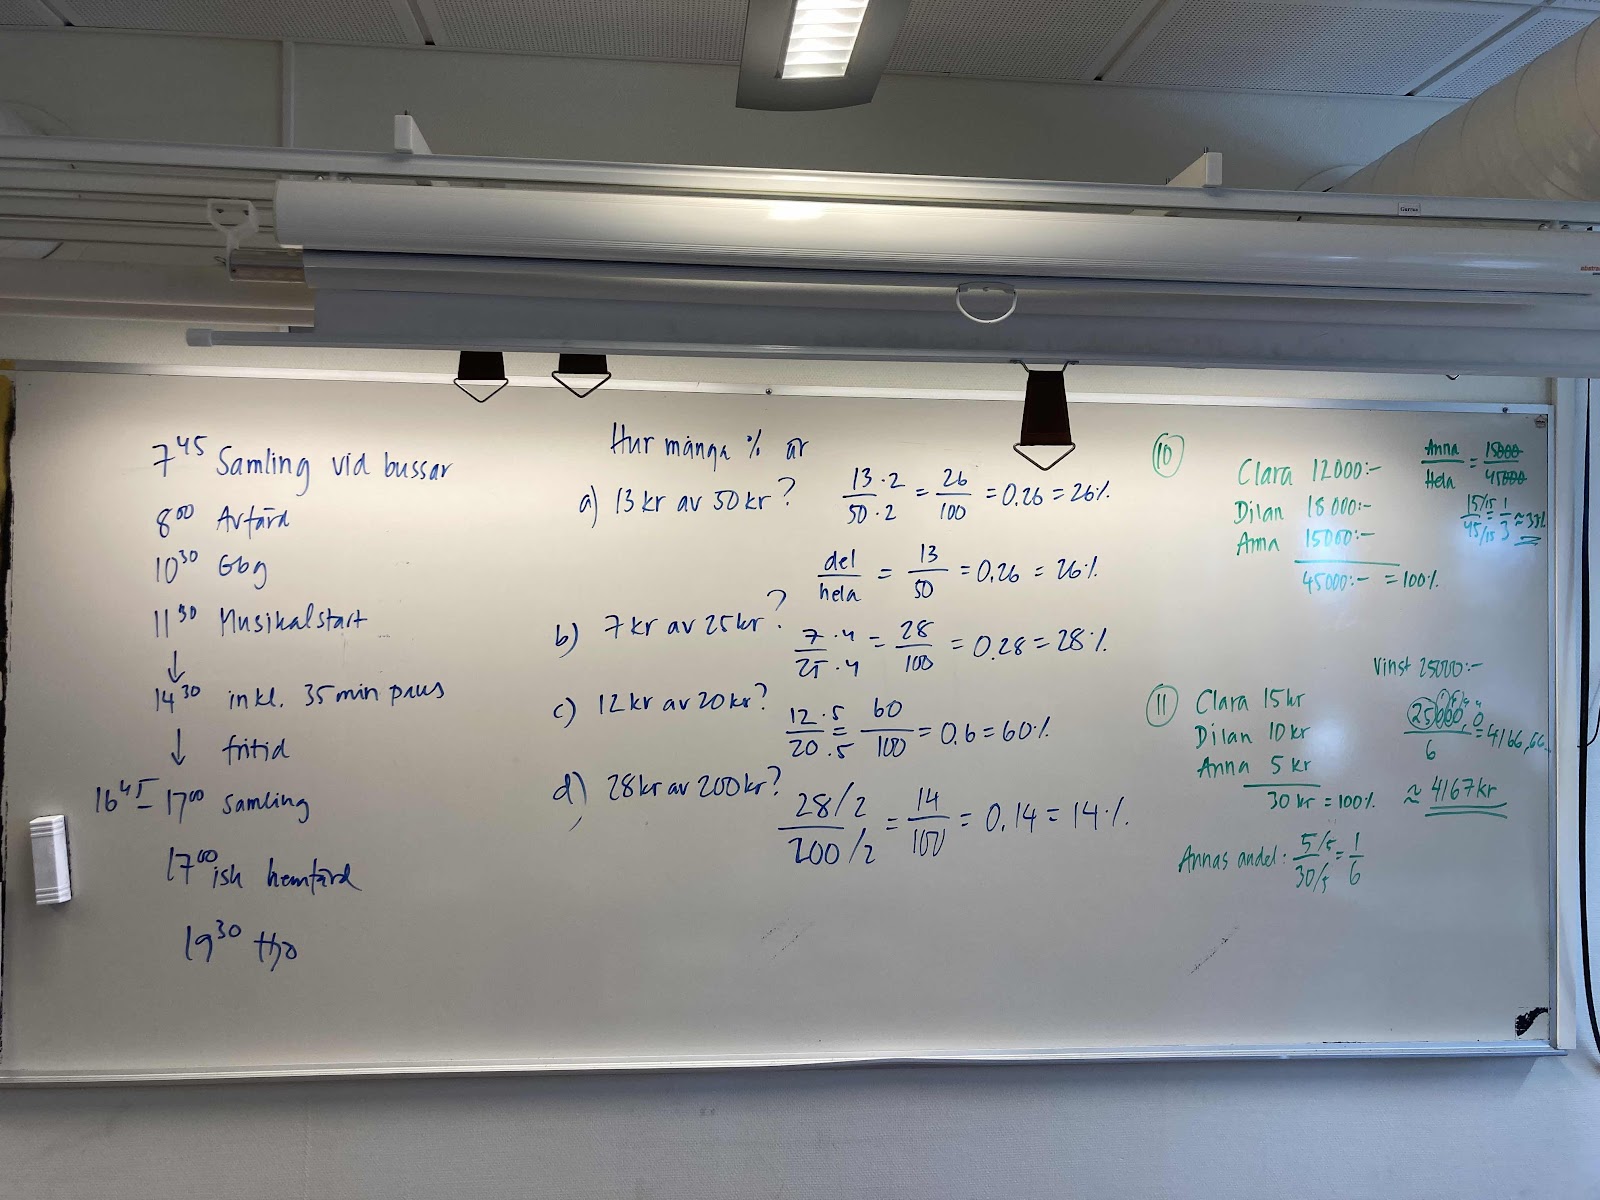 7⁴⁵ Samling vid bussar
8⁰⁰ Avfärd
10³⁰ Gbg
11³⁰ Musikalstart
↓
14³⁰ inkl. 35 min paus
↓ fritid
16⁴⁵ – 17⁰⁰ samling
17⁰⁰ ish hemfärd
19³⁰ thn
Hur många % är
a) 13 kr av 50 kr? 13·2/50·2 = 26/100 = 0.26 = 26%
del/hela = 13/50 = 0.26 = 26%
b) 7 kr av 25 kr? 7·4/25·4 = 28/100 = 0.28 = 28%
c) 12 kr av 20 kr? 12·5/20·5 = 60/100 = 0.6 = 60%
d) 28 kr av 200 kr? 28/2/200/2 = 14/100 = 0.14 = 14%
10
Clara 12000:-
Dilan 18000:-
Anna 15000:-
45000:- = 100%
Anna/Hela = 15000/45000
15/15/45/15 = 1/3 ≈ 33%
11
Clara 15 kr
Dilan 10 kr
Anna 5 kr
30 kr = 100%
Annas andel: 5/5/30/5 = 1/6
Vinst 25000:-
25000,0/6 = 4166,66...
≈ 4167 kr